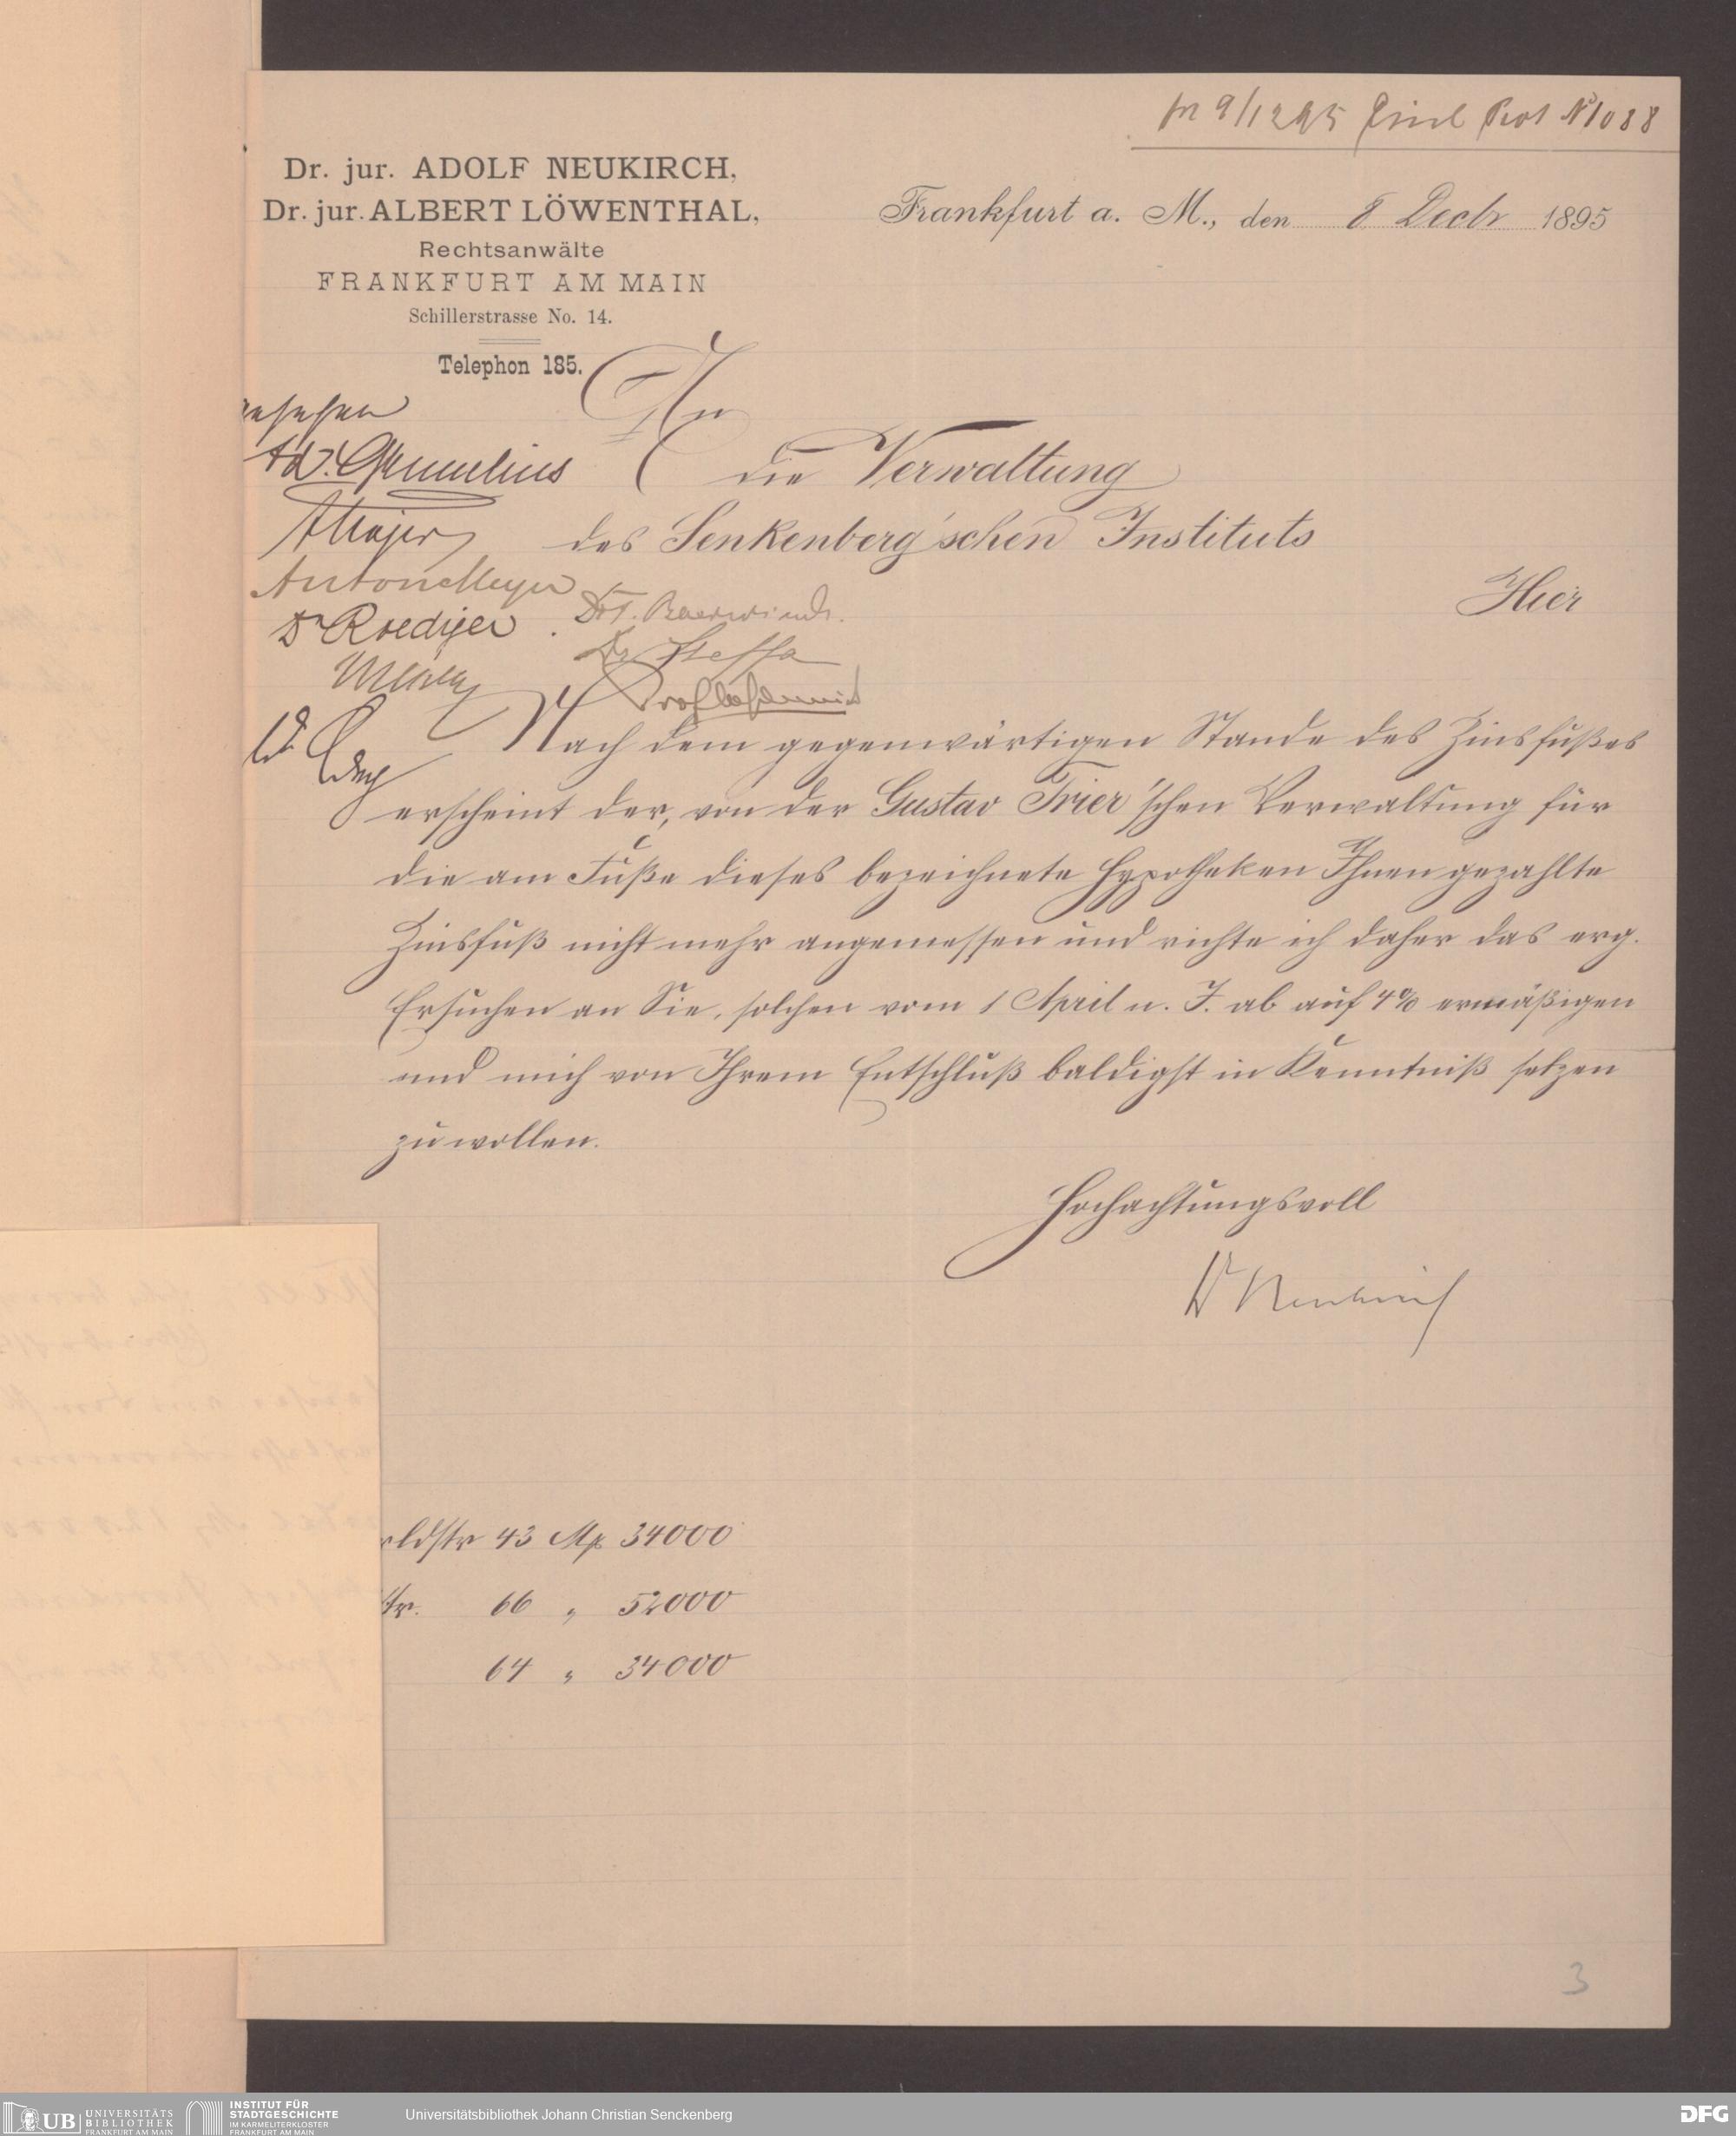 pr 9/12 95 Einl Prot № 1088
Dr. jur. ADOLF NEUKIRCH,
Dr. jur. ALBERT LÖWENTHAL,
Rechtsanwälte
FRANKFURT AM MAIN
Schillerstrasse No. 14.
Telephon 185.
Frankfurt a. M., den 8 Decbr 1895
gesehen
An
die Verwaltung
des Senkenberg'schen Instituts
Hier
Anton Meyer
Dr Roediger
Nach dem gegenwärtigen Stande des Zinsfußes
erscheint der, von der Gustav Trier'schen Verwaltung für
die am Fuße dieses bezeichnete Hypotheken Ihnen gezahlte
Zinsfuß nicht mehr angemessen und richte ich daher das erg.
Ersuchen an Sie, solchen vom 1 April n. J. ab auf 4% ermäßigen
und mich von Ihrem Entschluß baldigst in Kenntniß setzen
zu wollen.
Hochachtungsvoll
Dr Neukirch
ldstr 43 Mk 34000
str. 66 " 52000
64 " 34000
3
UB UNIVERSITÄTS
BIBLIOTHEK
FRANKFURT AM MAIN
INSTITUT FÜR
STADTGESCHICHTE
IM KARMELITERKLOSTER
FRANKFURT AM MAIN
Universitätsbibliothek Johann Christian Senckenberg
DFG